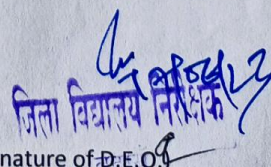 जिला विद्यालय निरीक्षक
nature of D.E.O